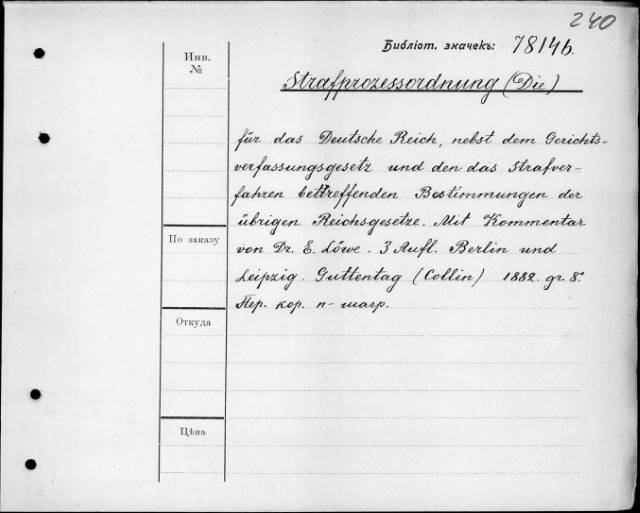 240
Библіот. значекъ: 78146.
Инв.
№
Strafprozessordnung (Die)
für das Deutsche Reich, nebst dem Gerichts-
verfassungsgesetz und den das Strafver-
fahren bettreffenden Bestimmungen der
übrigen Reichsgesetze. Mit Kommentar
По заказу
von Dr. E. Löwe. 3 Aufl. Berlin und
Leipzig. Guttentag (Collin) 1882. gr. 8°
Пер. кор. п-шагр.
Откуда
Цѣна